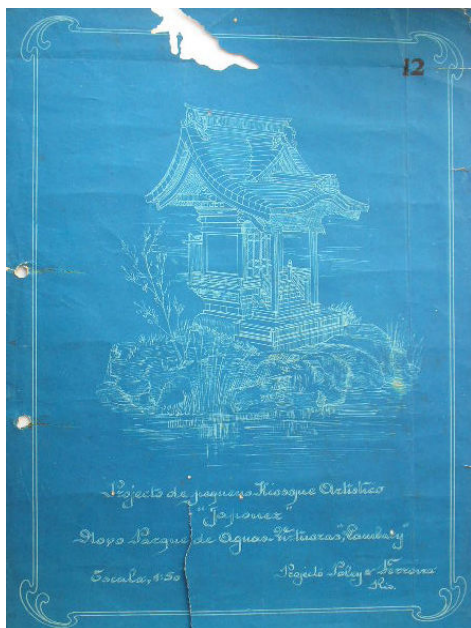 12
Projecto de pequeno Kiosque Artistico
"Japonez"
Novo Parque de Aguas Virtuosas, "Lambary"
Escala, 1:50
Projecto Poley e Ferreira
Rio.